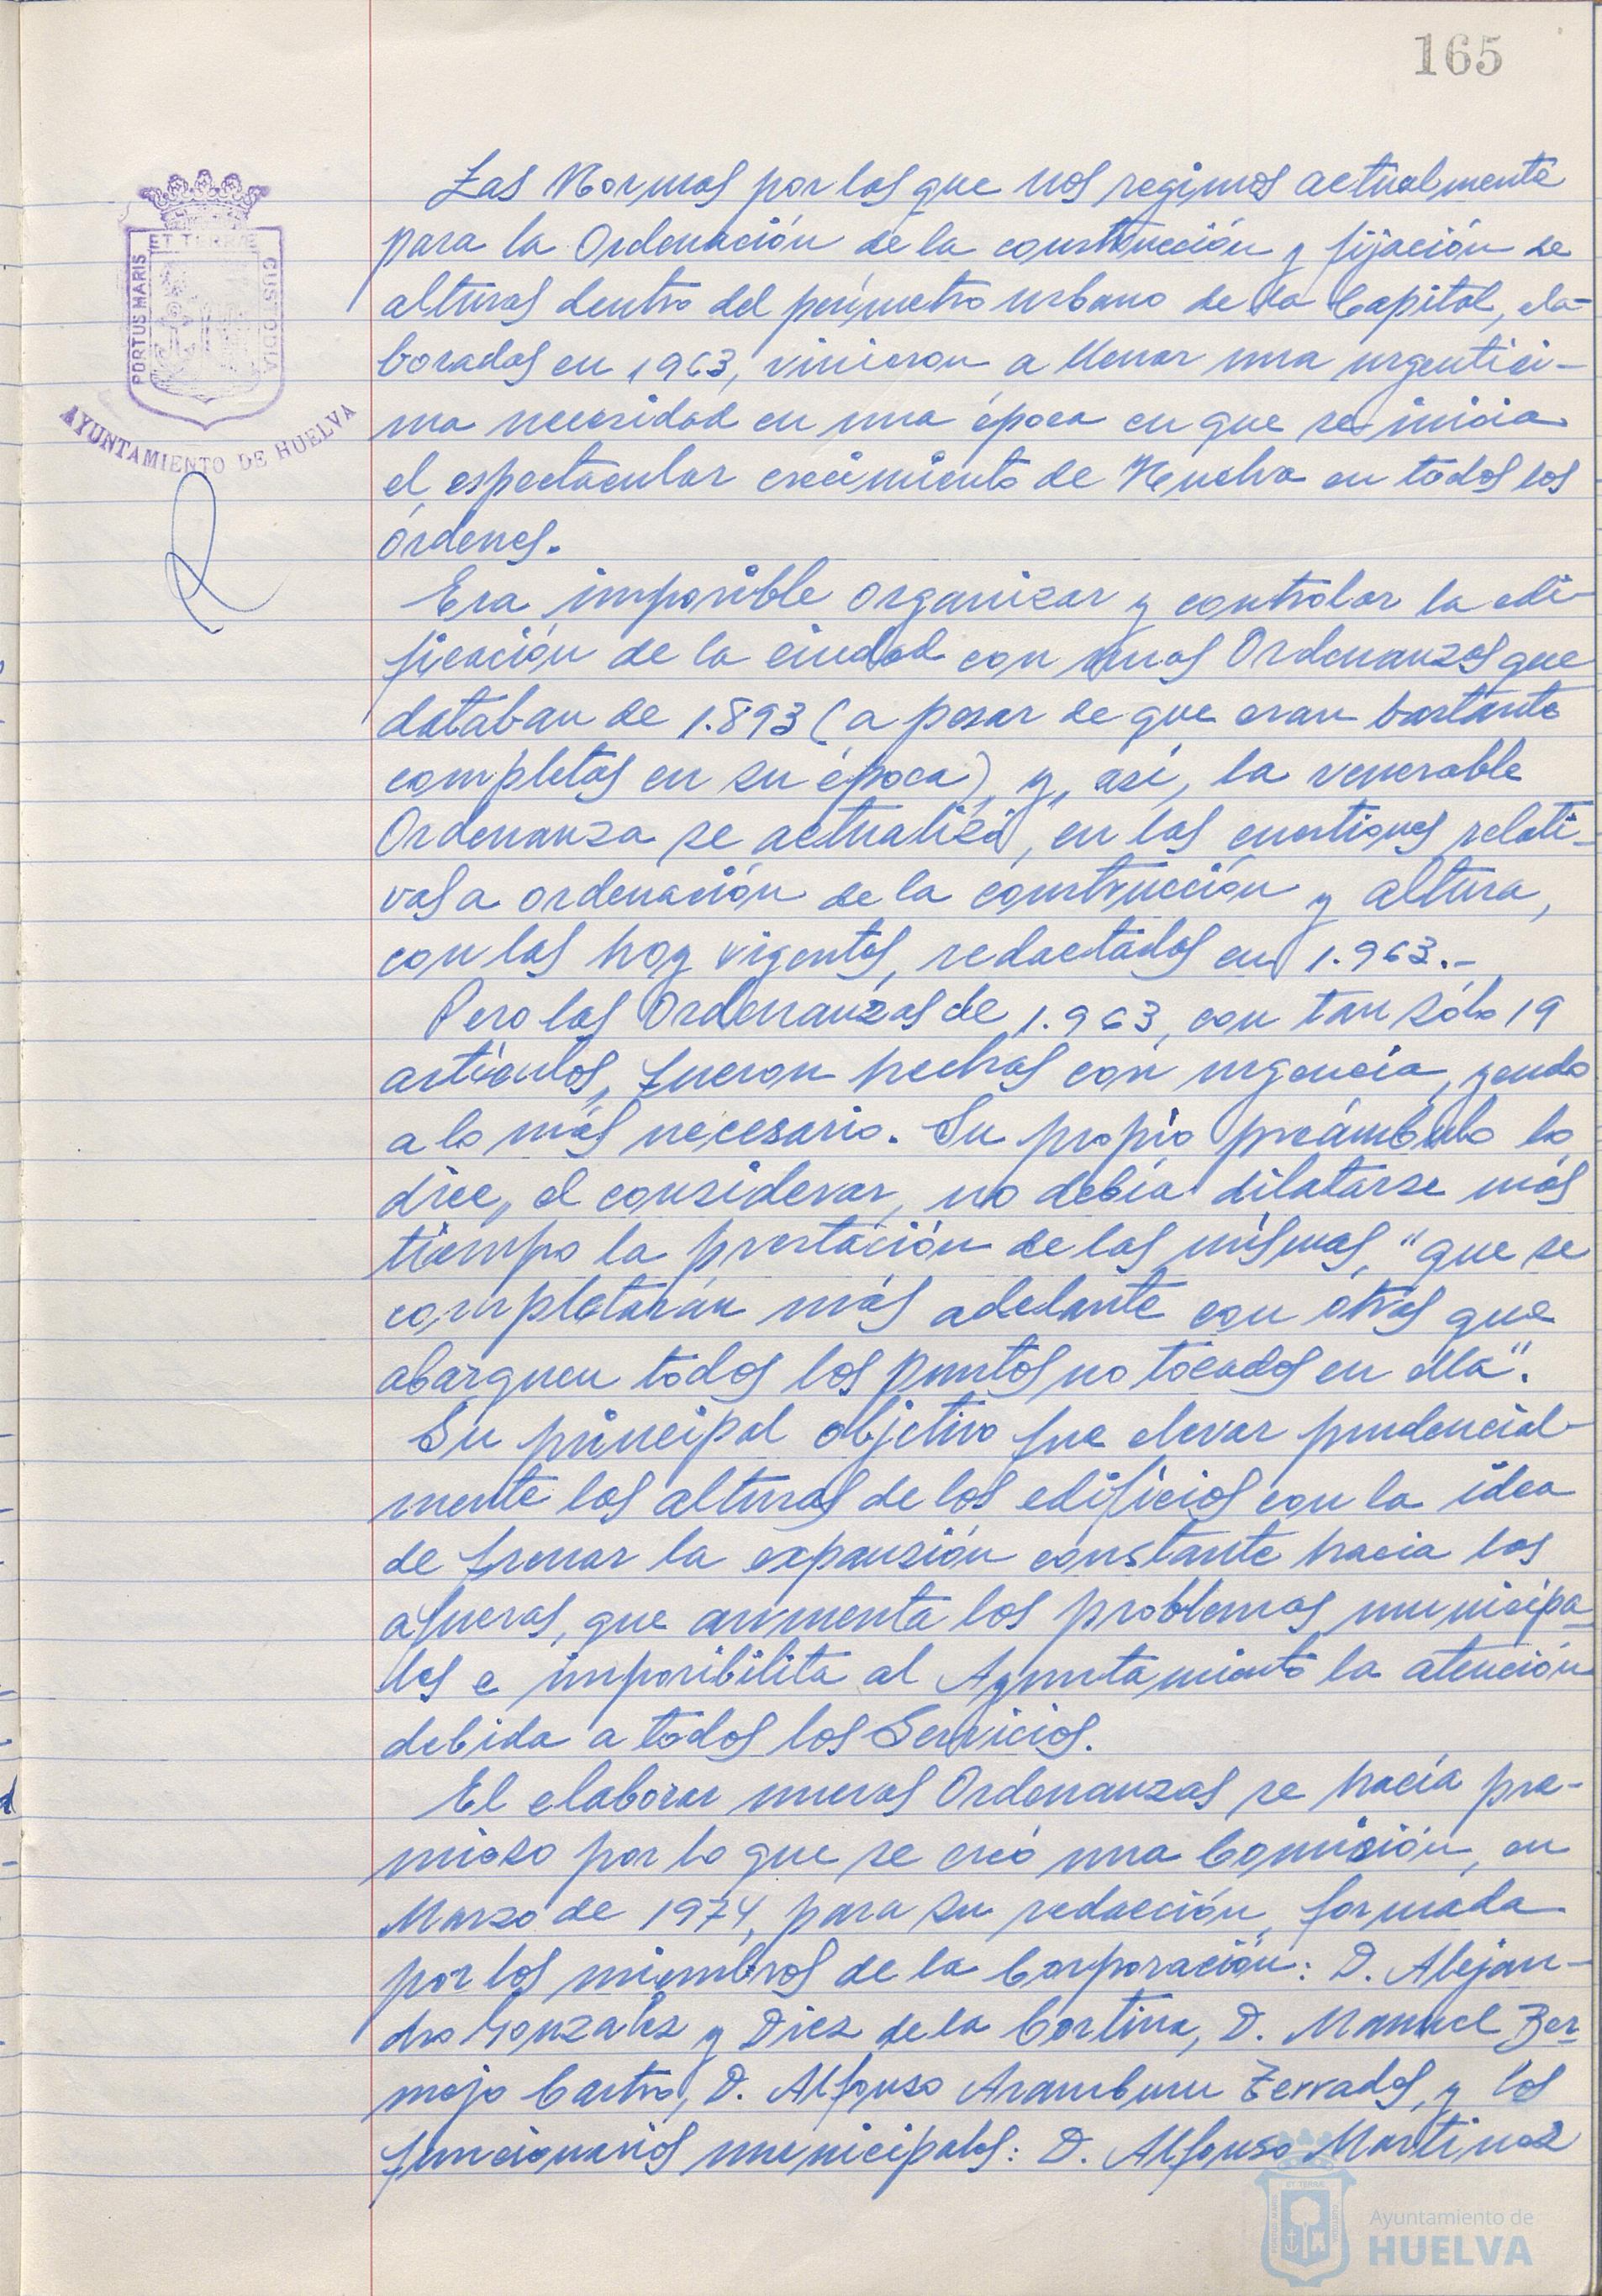 165
PORTUS MARIS
ET TERRAE
CUSTODIA
AYUNTAMIENTO DE HUELVA
Las Normas por las que nos regimos actualmente
para la Ordenación de la construcción y fijación de
alturas dentro del perímetro urbano de la Capital, ela-
boradas en 1963, vinieron a llenar una urgentísi-
ma necesidad en una época en que se inicia
el espectacular crecimiento de Huelva en todos los
órdenes.
Era imposible organizar y controlar la edi-
ficación de la ciudad con unas Ordenanzas que
databan de 1.893 (a pesar de que eran bastante
completas en su época), y, así, la venerable
Ordenanza se actualizó, en las cuestiones relati-
vas a ordenación de la construcción y altura,
con las hoy vigentes, redactadas en 1.963.-
Pero las Ordenanzas de 1.963, con tan sólo 19
artículos, fueron hechas con urgencia, yendo
a lo más necesario. Su propio preámbulo lo
dice, al considerar, no debía dilatarse más
tiempo la prestación de las mismas, "que se
completarán más adelante con otras que
abarquen todos los puntos no tocados en ella".
Su principal objetivo fue elevar prudencial-
mente las alturas de los edificios con la idea
de frenar la expansión constante hacia las
afueras, que aumenta los problemas municipa-
les e imposibilita al Ayuntamiento la atención
debida a todos los Servicios.
El elaborar nuevas Ordenanzas se hacía pre-
mioso por lo que se creó una Comisión, en
Marzo de 1974, para su redacción, formada
por los miembros de la Corporación: D. Alejan-
dro González y Diez de la Cortina, D. Manuel Ber-
mejo Castro, D. Alfonso Aramburu Terrades, y los
funcionarios municipales: D. Alfonso Martínez
Ayuntamiento de
HUELVA